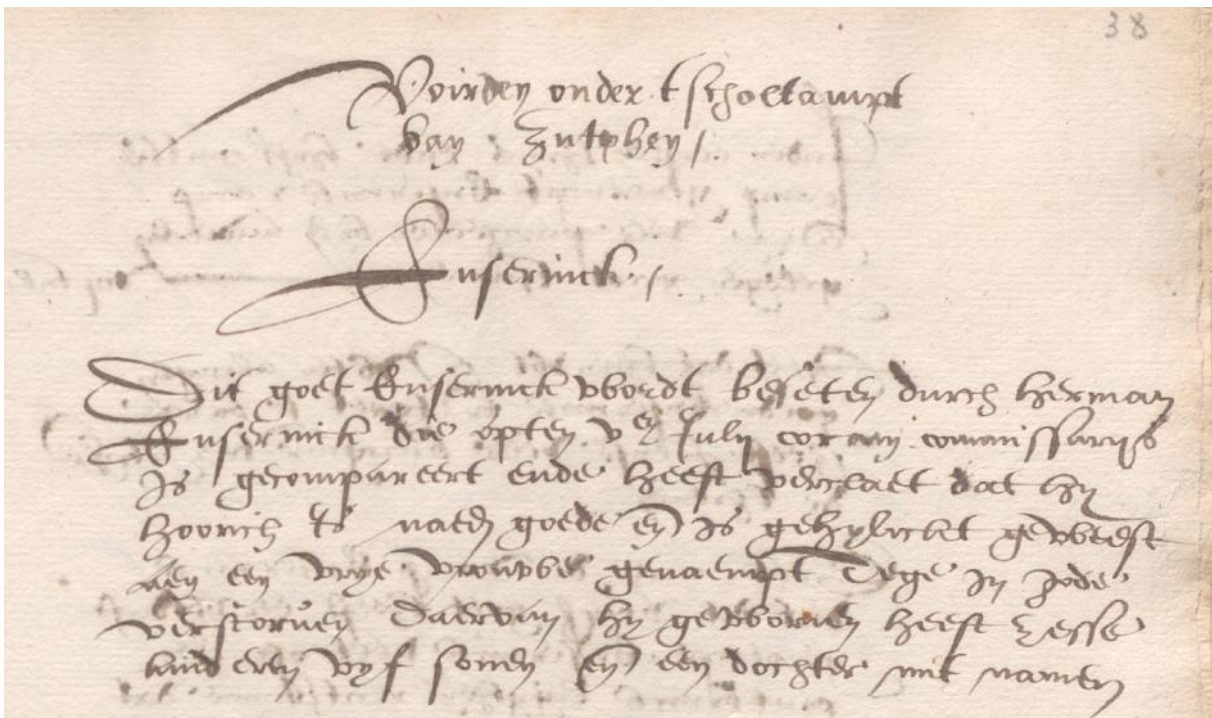 38
Voirden onder tscholtampt
van Zutphen /.
Enserinck /.
Dit goet Enserinck wordt beseten durch Herman
Enserinck die opten ven July coram commissarijs
Is gecompareert ende heeft verclaet dat hy
hoorich is naedn goede en Is gehylickt geweest
aen een vrye vrouwe genaempt Dege In gode
verstorven daervan hy geworven heeft zesse
kinderen vyf sonen en een dochter mit namen